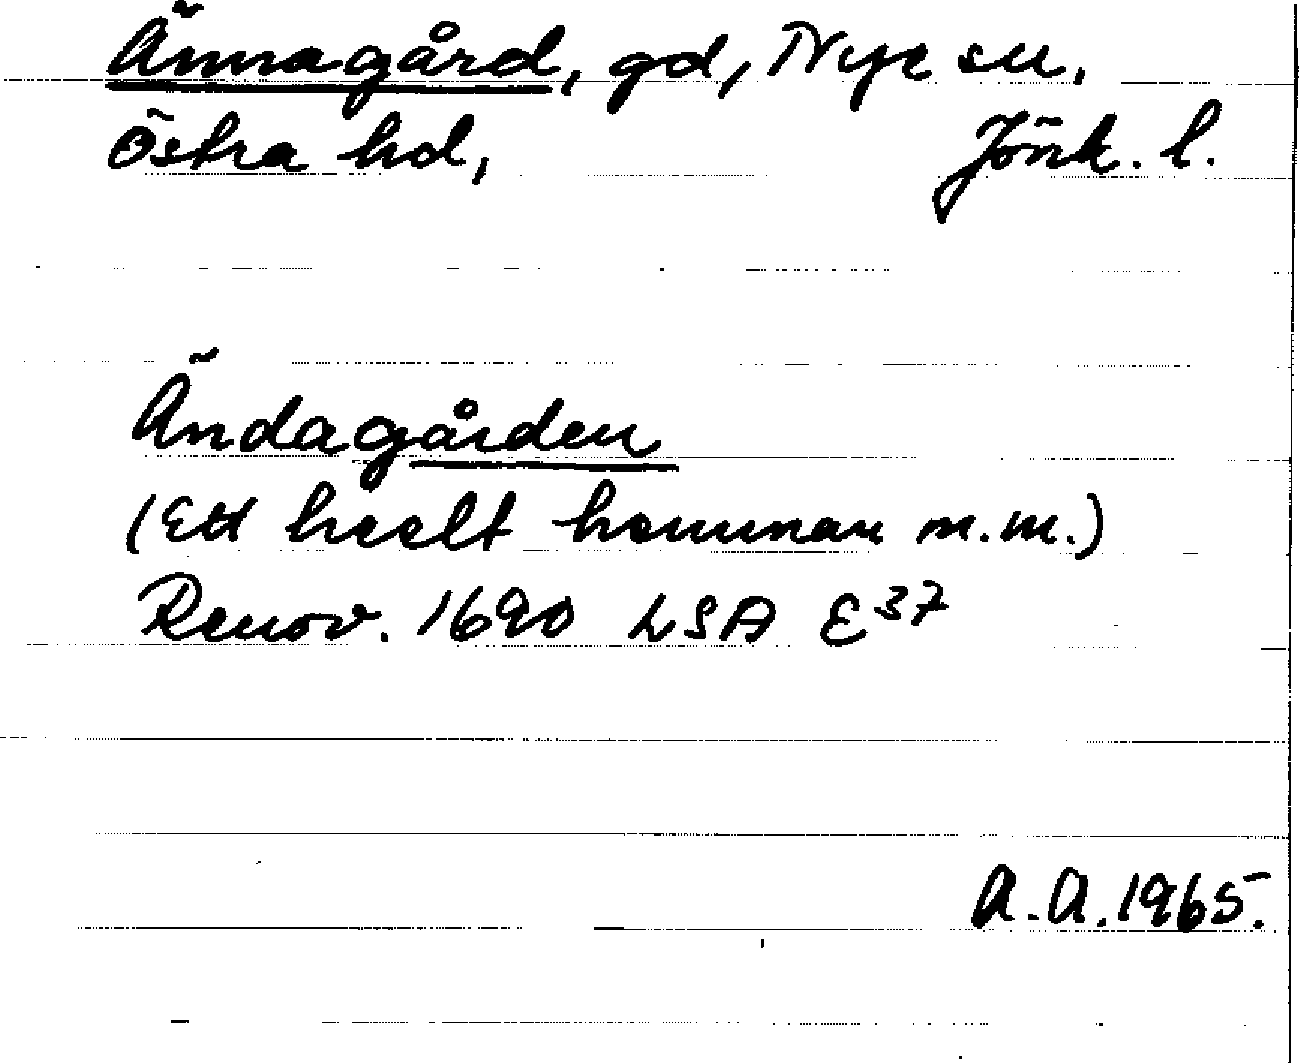 Ännagård, gd, Nye sn.
Östra hd, Jönk. l.
Ändagården
(Ett heelt hemman m.m.)
Renov. 1690 LSA E37
A.A. 1965.